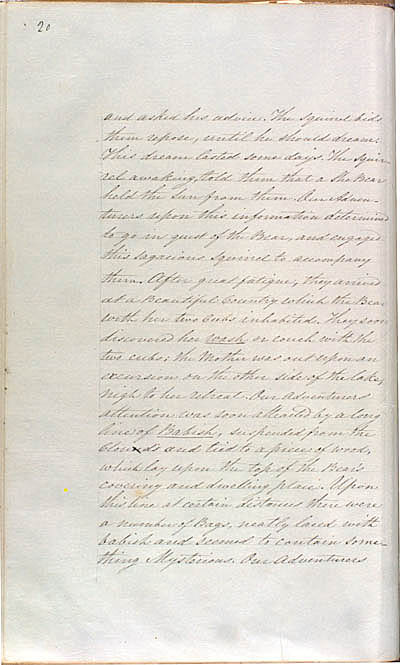 20
and asked his advice. The Squirrel bids
them repose, until he should dream:
This dream lasted some days. The Squir-
rel awaking, told them that a She Bear
held the Sun from them. Our Adven-
turers upon this information determined
to go in quest of the Bear, and engaged
this sagacious Squirrel to accompany
them. After great fatigue, they arrived
at a Beautiful Country which the Bear
with her two Cubs inhabited. They soon
discovered her wash or couch with the
two cubs; the Mother was out upon an
excursion on the other side of the lake,
nigh to her retreat. Our Adventurers
attention was soon attracted by a long
line of Babish, suspended from the
Clouds and tied to a piece of wood,
which lay upon the top of the Bear's
covering and dwelling place. Upon
this line at certain distances there were
a number of Bags, neatly laced with
babish and seemed to contain some-
thing Mysterious. Our Adventurers